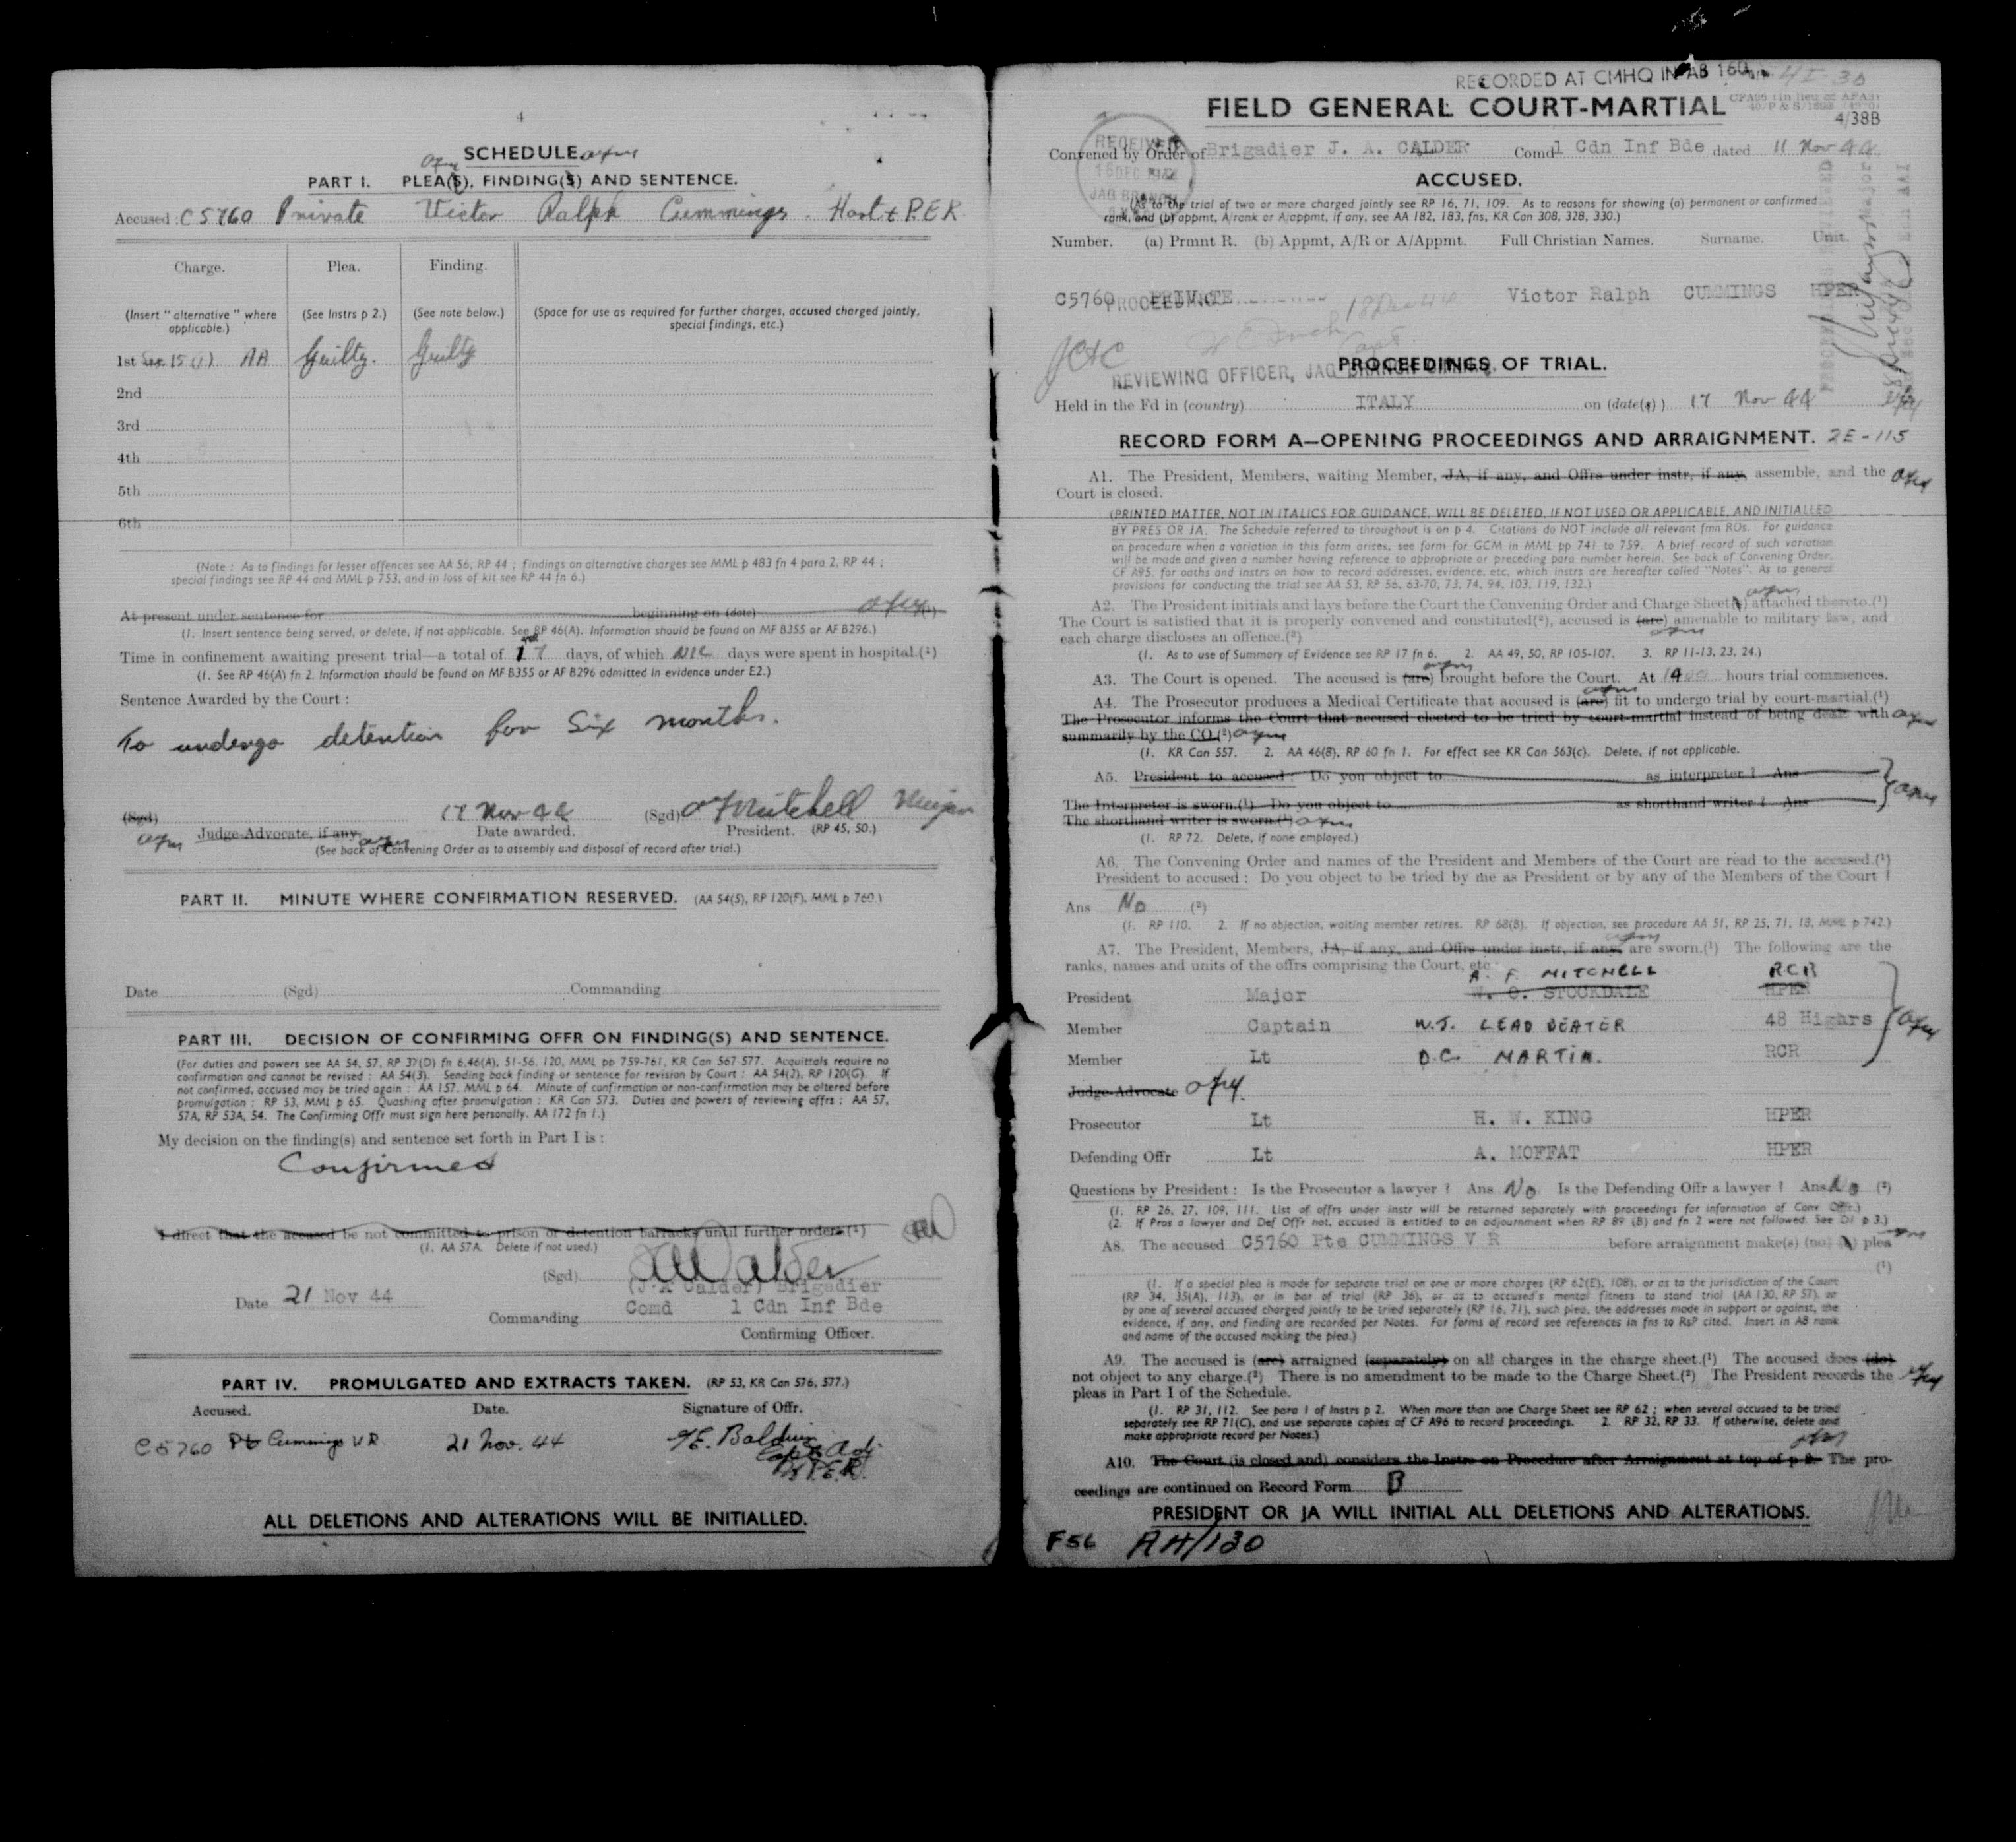 4
SCHEDULE
PART I. PLEA(S), FINDING(S) AND SENTENCE.
Accused: C5760 Private Victor Ralph Cummings. Hast & P.E.R.
Charge. Plea. Finding.
(Insert " alternative " where applicable.) (See Instrs p 2.) (See note below.) (Space for use as required for further charges, accused charged jointly, special findings, etc.)
1st Sec 15 (1) AA Guilty. Guilty
2nd
3rd
4th
5th
6th
(Note : As to findings for lesser offences see AA 56, RP 44 ; findings on alternative charges see MML p 483 fn 4 para 2, RP 44 ;
special findings see RP 44 and MML p 753, and in loss of kit see RP 44 fn 6.)
At present under sentence for beginning on (date) (1)
(1. Insert sentence being served, or delete, if not applicable. See RP 46(A). Information should be found on MF B355 or AF B296.)
Time in confinement awaiting present trial—a total of 17 days, of which NIL days were spent in hospital.(1)
(1. See RP 46(A) fn 2. Information should be found on MF B355 or AF B296 admitted in evidence under E2.)
Sentence Awarded by the Court :
To undergo detention for six months.
(Sgd) 17 Nov 44 (Sgd) A F Mitchell Major
Judge-Advocate, if any. Date awarded. President. (RP 45, 50.)
(See back of Convening Order as to assembly and disposal of record after trial.)
PART II. MINUTE WHERE CONFIRMATION RESERVED. (AA 54(5), RP 120(F), MML p 760.)
Date (Sgd) Commanding
PART III. DECISION OF CONFIRMING OFFR ON FINDING(S) AND SENTENCE.
(For duties and powers see AA 54, 57, RP 37(D) fn 6,46(A), 51-56, 120, MML pp 759-761, KR Can 567-577. Acquittals require no
confirmation and cannot be revised : AA 54(3). Sending back finding or sentence for revision by Court : AA 54(2), RP 120(G). If
not confirmed, accused may be tried again : AA 157, MML p 64. Minute of confirmation or non-confirmation may be altered before
promulgation : RP 53, MML p 65. Quashing after promulgation : KR Can 573. Duties and powers of reviewing offrs : AA 57,
57A, RP 53A, 54. The Confirming Offr must sign here personally. AA 172 fn 1.)
My decision on the finding(s) and sentence set forth in Part I is :
Confirmed
I direct that the accused be not committed to prison or detention barracks until further orders.(1)
(1. AA 57A. Delete if not used.)
(Sgd) J A Calder
(J. A Calder) Brigadier
Date 21 Nov 44 Comd 1 Cdn Inf Bde
Commanding
Confirming Officer.
PART IV. PROMULGATED AND EXTRACTS TAKEN. (RP 53, KR Can 576, 577.)
Accused. Date. Signature of Offr.
C5760 Pte Cummings V.R. 21 Nov. 44 Baldwin
Capt & Adj
H.P.E.R.
ALL DELETIONS AND ALTERATIONS WILL BE INITIALLED.
RECORDED AT CMHQ IN AB 160
FIELD GENERAL COURT-MARTIAL
4/38B
Convened by Order of Brigadier J. A. CALDER Comd 1 Cdn Inf Bde dated 11 Nov 44.
RECEIVED
15 DEC 1944
JAG BRANCH
ACCUSED.
(As to the trial of two or more charged jointly see RP 16, 71, 109. As to reasons for showing (a) permanent or confirmed
rank, and (b) appmt, A/rank or A/appmt, if any, see AA 182, 183, fns, KR Can 308, 328, 330.)
Number. (a) Prmnt R. (b) Appmt, A/R or A/Appmt. Full Christian Names. Surname. Unit.
C5760 PRIVATE Victor Ralph CUMMINGS HPER
18 Dec 44
REVIEWING OFFICER, JAG BRANCH
PROCEEDINGS OF TRIAL.
Held in the Fd in (country) ITALY on (date(s)) 17 Nov 44
RECORD FORM A—OPENING PROCEEDINGS AND ARRAIGNMENT. 2E-115
A1. The President, Members, waiting Member, JA, if any, and Offrs under instr, if any, assemble, and the
Court is closed.
(PRINTED MATTER, NOT IN ITALICS FOR GUIDANCE, WILL BE DELETED, IF NOT USED OR APPLICABLE, AND INITIALLED
BY PRES OR JA. The Schedule referred to throughout is on p 4. Citations do NOT include all relevant fmn ROs. For guidance
on procedure when a variation in this form arises, see form for GCM in MML pp 741 to 759. A brief record of such variation
will be made and given a number having reference to appropriate or preceding para number herein. See back of Convening Order,
CF A95, for oaths and instrs on how to record addresses, evidence, etc, which instrs are hereafter called "Notes". As to general
provisions for conducting the trial see AA 53, RP 56, 63-70, 73, 74, 94, 103, 119, 132.)
A2. The President initials and lays before the Court the Convening Order and Charge Sheet(s) attached thereto.(1)
The Court is satisfied that it is properly convened and constituted(2), accused is (are) amenable to military law, and
each charge discloses an offence.(3)
(1. As to use of Summary of Evidence see RP 17 fn 6. 2. AA 49, 50, RP 105-107. 3. RP 11-13, 23, 24.)
A3. The Court is opened. The accused is (are) brought before the Court. At 1400 hours trial commences.
A4. The Prosecutor produces a Medical Certificate that accused is (are) fit to undergo trial by court-martial.(1)
The Prosecutor informs the Court that accused elected to be tried by court-martial instead of being dealt with
summarily by the CO.(2)
(1. KR Can 557. 2. AA 46(8), RP 60 fn 1. For effect see KR Can 563(c). Delete, if not applicable.
A5. President to accused : Do you object to as interpreter ? Ans
The Interpreter is sworn.(1) Do you object to as shorthand writer ? Ans
The shorthand writer is sworn.(1)
(1. RP 72. Delete, if none employed.)
A6. The Convening Order and names of the President and Members of the Court are read to the accused.(1)
President to accused : Do you object to be tried by me as President or by any of the Members of the Court ?
Ans No (2)
(1. RP 110. 2. If no objection, waiting member retires. RP 68(B). If objection, see procedure AA 51, RP 25, 71, 18, MML p 742.)
A7. The President, Members, JA, if any, and Offrs under instr, if any, are sworn.(1) The following are the
ranks, names and units of the offrs comprising the Court, etc
A. F. MITCHELL RCR
President Major W. O. STOCKDALE HPER
Member Captain W.J. LEADBEATER 48 Highrs
Member Lt D.C. MARTIN. RCR
Judge-Advocate
Prosecutor Lt H. W. KING HPER
Defending Offr Lt A. MOFFAT HPER
Questions by President : Is the Prosecutor a lawyer ? Ans No Is the Defending Offr a lawyer ? Ans No (2)
(1. RP 26, 27, 109, 111. List of offrs under instr will be returned separately with proceedings for information of Conv Offr.)
(2. If Pros a lawyer and Def Offr not, accused is entitled to an adjournment when RP 89 (B) and fn 2 were not followed. See D1 p 3.)
A8. The accused C5760 Pte CUMMINGS V R before arraignment make(s) (no) (a) plea
(1)
(1. If a special plea is made for separate trial on one or more charges (RP 62(E), 108), or as to the jurisdiction of the Court
(RP 34, 35(A), 113), or in bar of trial (RP 36), or as to accused's mental fitness to stand trial (AA 130, RP 57), or
by one of several accused charged jointly to be tried separately (RP 16, 71), such plea, the addresses made in support or against, the
evidence, if any, and finding are recorded per Notes. For forms of record see references in fns to RsP cited. Insert in A8 rank
and name of the accused making the plea.)
A9. The accused is (are) arraigned (separately) on all charges in the charge sheet.(1) The accused does (do)
not object to any charge.(2) There is no amendment to be made to the Charge Sheet.(2) The President records the
pleas in Part I of the Schedule.
(1. RP 31, 112. See para 1 of Instrs p 2. When more than one Charge Sheet see RP 62 ; when several accused to be tried
separately see RP 71(C), and use separate copies of CF A96 to record proceedings. 2. RP 32, RP 33. If otherwise, delete and
make appropriate record per Notes.)
A10. The Court (is closed and) considers the Instrs on Procedure after Arraignment at top of p 2. The pro-
ceedings are continued on Record Form B
PRESIDENT OR JA WILL INITIAL ALL DELETIONS AND ALTERATIONS.
F56 RH/130